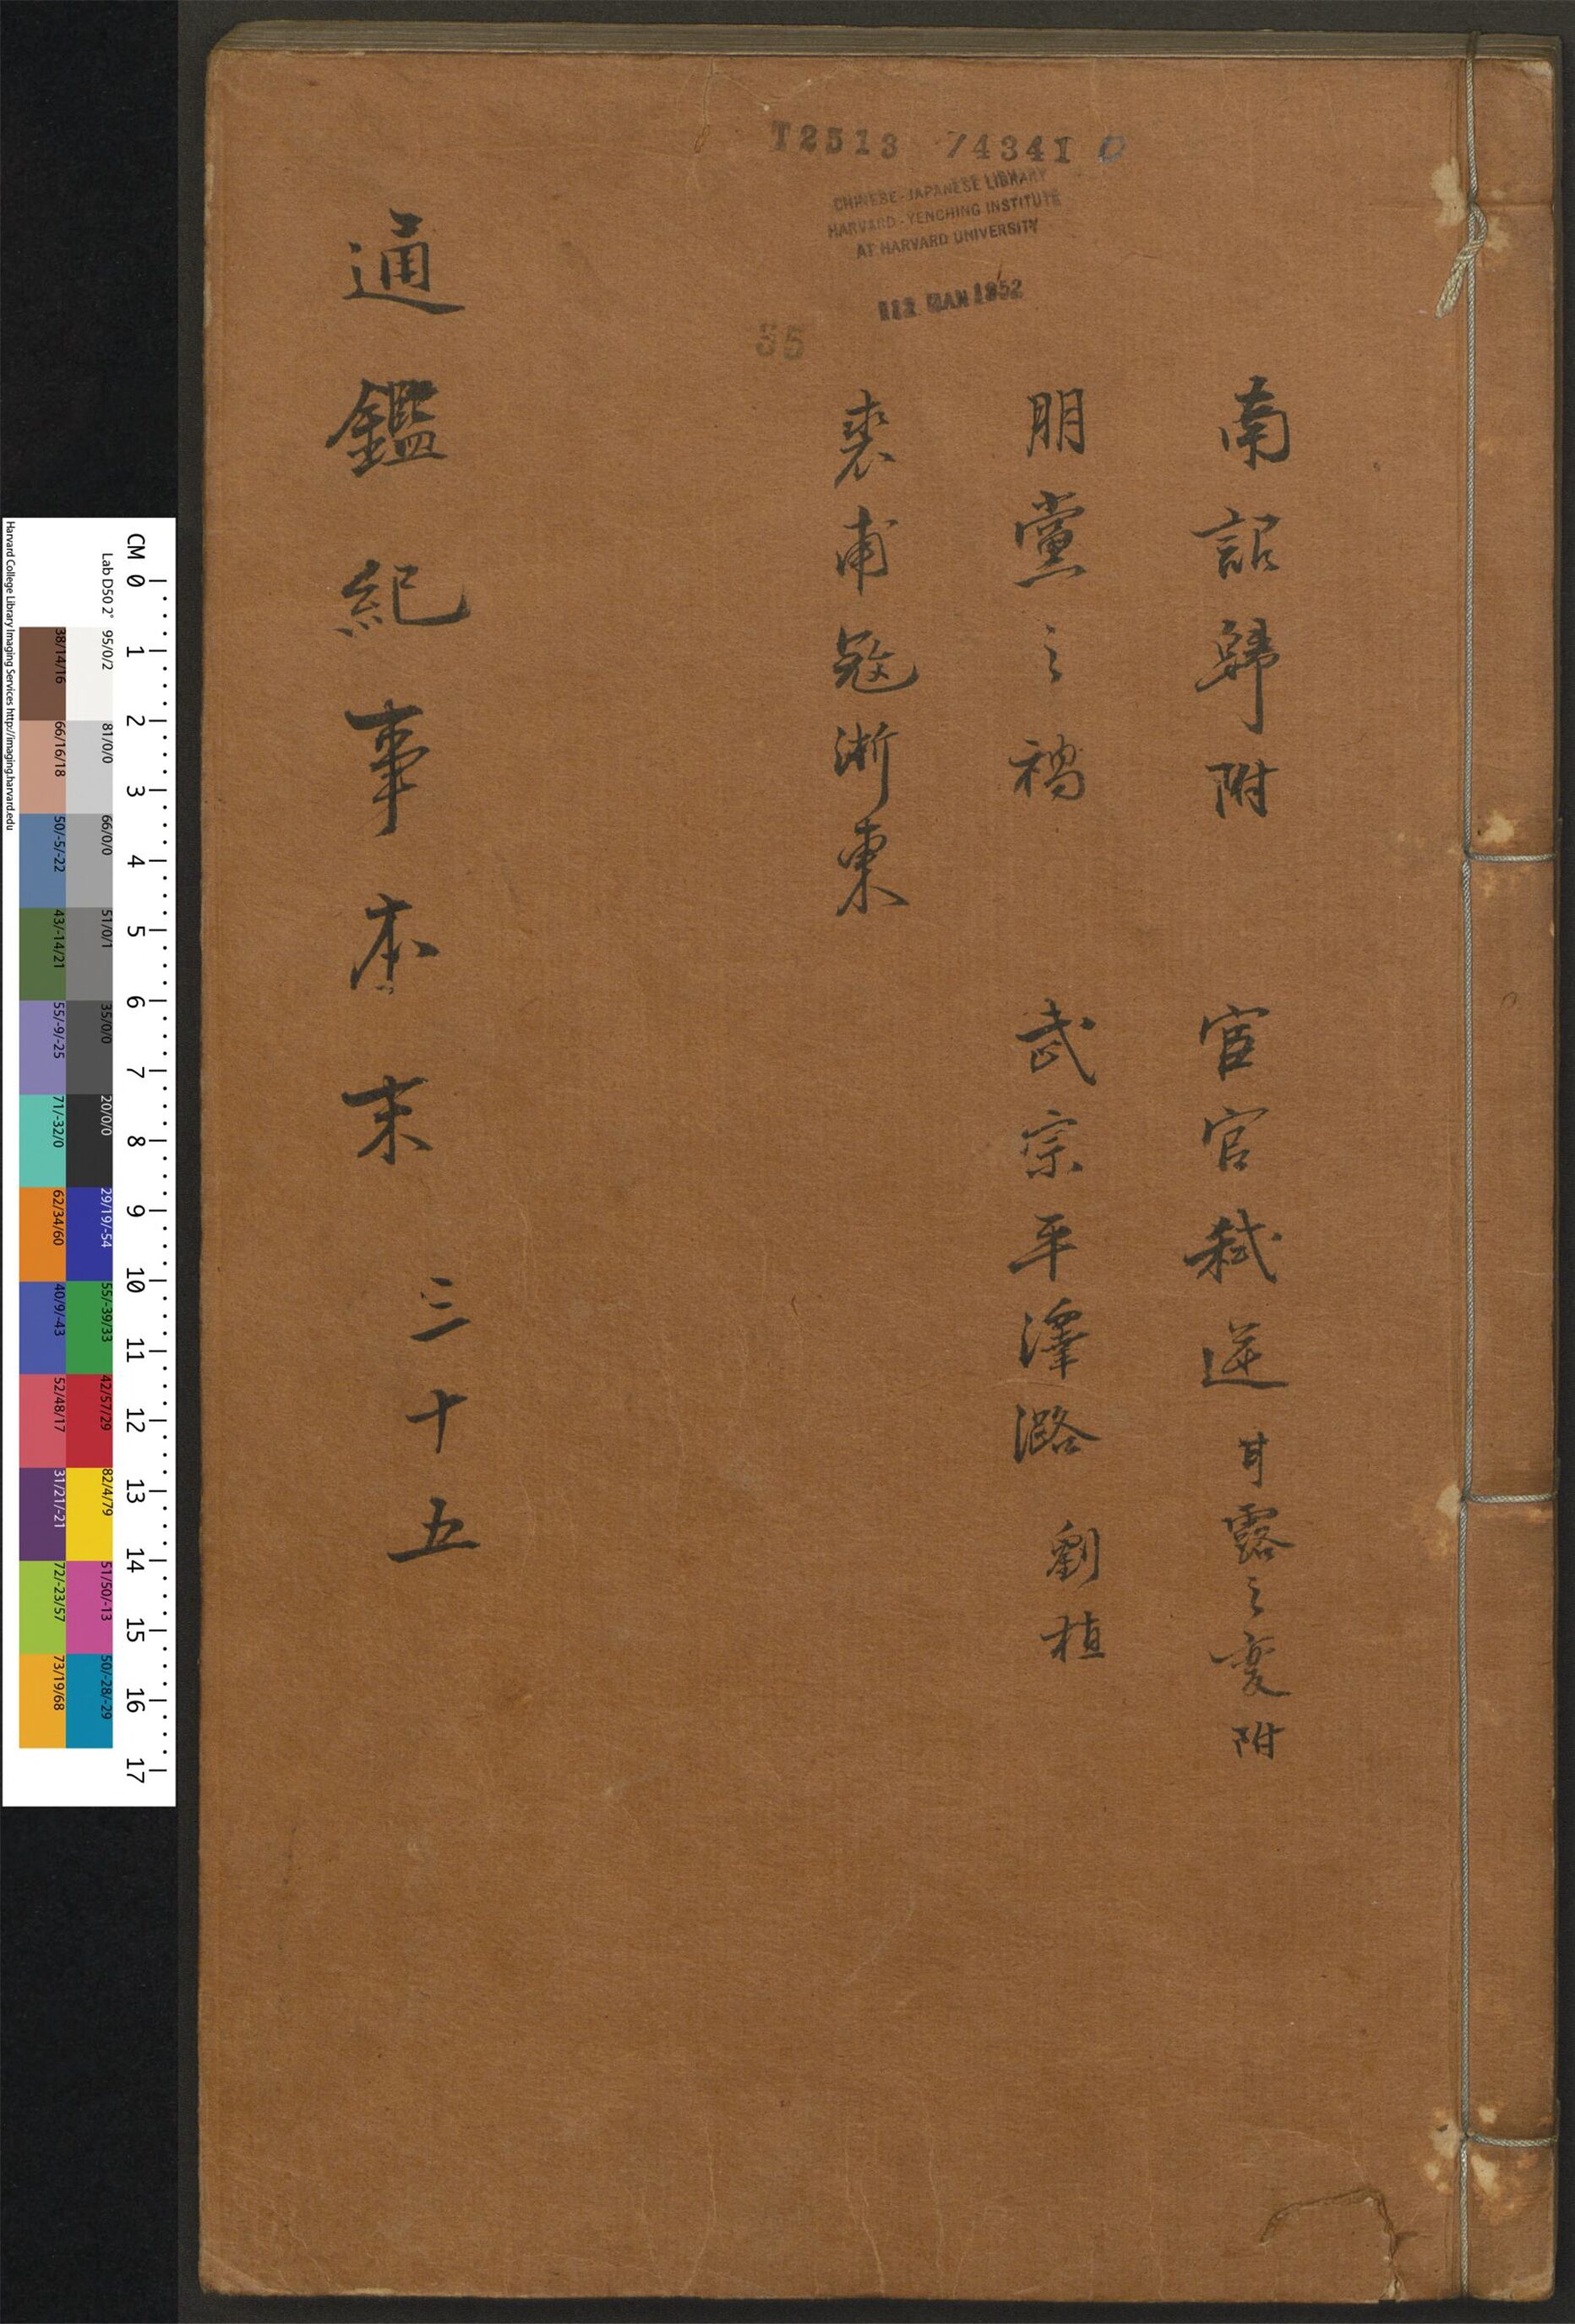 T2513 74341
CHINESE-JAPANESE LIBRARY
HARVARD-YENCHING INSTITUTE
AT HARVARD UNIVERSITY
1952
35
南詔歸附 宦官弑逆 甘露之変附
朋黨之禍 武宗平澤潞 劉稹
裘甫寇浙東
通鑑紀事本末 三十五
CM 0 1 2 3 4 5 6 7 8 9 10 11 12 13 14 15 16 17
Lab D50 2° 95/0/2 81/0/0 66/0/0 51/0/1 35/0/0 20/0/0 29/19/-54 55/-39/33 42/57/29 82/4/79 51/50/-13 50/-28/-29
38/14/16 66/16/18 50/-5/-22 43/-14/21 55/-9/-25 71/-32/0 62/34/60 40/9/-43 52/48/17 31/21/-21 72/-23/57 73/19/68
Harvard College Library Imaging Services http://imaging.harvard.edu